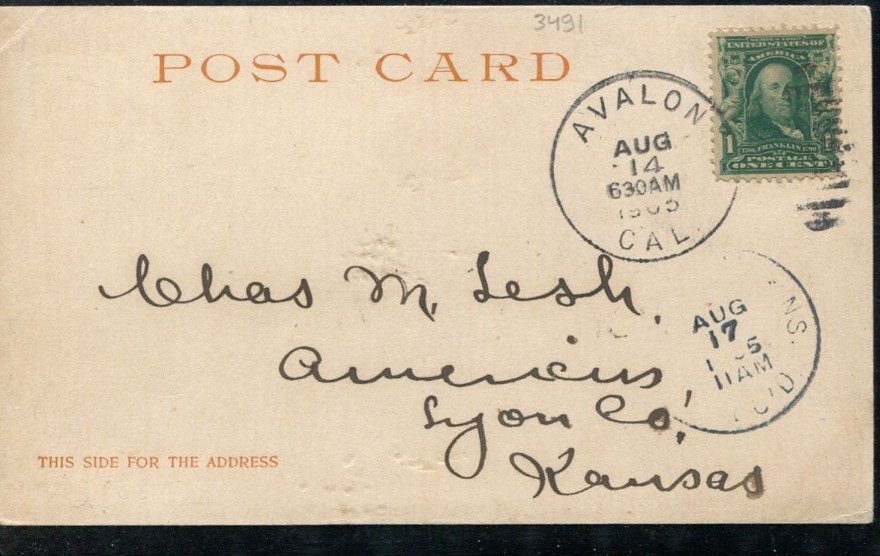 3491
POST CARD
SERIES 1902
UNITED STATES OF
AMERICA
1
1706 FRANKLIN 1790
POSTAGE
ONE CENT
AVALON
AUG
14
630AM
1905
CAL.
Chas M. Lesh,
Americus,
Lyon Co,
Kansas
AUG
17
11AM
REC'D
THIS SIDE FOR THE ADDRESS